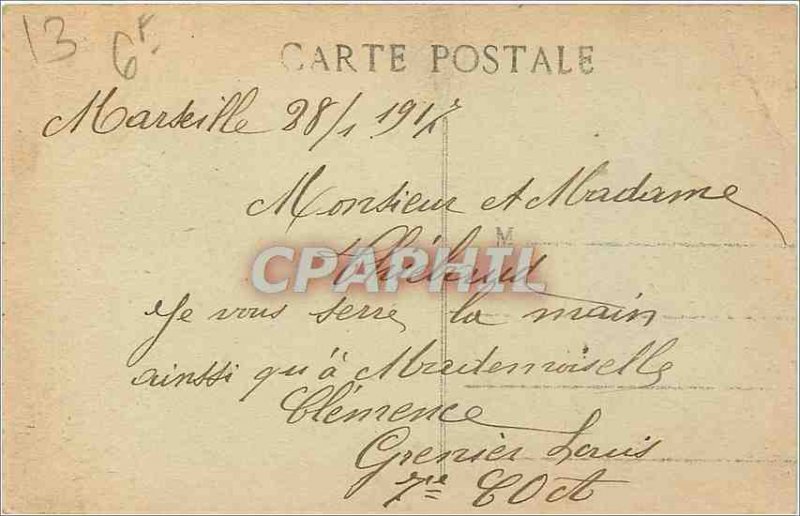 13
6F
CARTE POSTALE
Marseille 28/1 1917
Monsieur et Madame
M
Thiébaud
CPAPHIL
Je vous serre la main
ainssi qu'à Mademoiselle
Clémence
Grenier Louis
7me COA